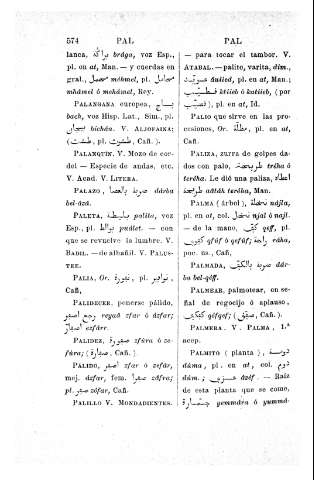 574 PAL PAL
lanca. براكة brága, voz Esp.,
pl. en at, Man. — y cuerdas en
gral., محمل méhmel, pl. محامل
mhámel ó mehánal, Rey.
PALANGANA europea, باج
bach, voz Hisp. Lat., Sim., pl.
بيجان bichán. V. ALJOFAINA;
(طشت, pl. طشوت, Cañ.).
PALANQUÍN. V. MOZO de cor-
del — Especie de andas, etc.
V. Acad. V. LITERA.
PALAZO, ضربة بالعصا dárba
bel-âzá.
PALETA, باليطة palíto, voz
Esp., pl. بوالط puálet. — con
que se revuelve la lumbre. V.
BADIL. — de albañil. V. PALUS-
TRE.
PALIA, Or. نفورة, pl. نوافير,
Cañ.
PALIDECER, ponerse pálido,
رجع اصفر reyaâ zfar ó âzfar;
اصفار ezfárr.
PALIDEZ, صفورة zfúra ó ze-
fúra; (صفارة, Cañ.).
PÁLIDO, اصفر zfar ó zefár,
mej. ázfar, fem. صفرا zófra;
pl. صفر zófar, Cañ.
PALILLO V. MONDADIENTES.
— para tocar el tambor. V.
ATABAL. — palito, varita, dim.,
عويد âuíied, pl. en at, Man.;
قطيب ktíieb ó katíieb, (por
قضيب) pl. en at, Id.
PALIO que sirve en las pro-
cesiones, Or. مظلة, pl. en at,
Cañ.
PALIZA, zurra de golpes da-
dos con palo, طريحة treha ó
teréha. Le dió una paliza, اعطاه
طريحة aâtáh teréha, Man.
PALMA (árbol), نخلة nájla,
pl. en at, col. نخل njal ó najl.
— de la mano, كف qeff, pl.
كفوف qfúf ó qefúf; راحة ráha,
poc. us., Cañ.
PALMADA, ضربة بالكف dár-
ba bel-qéff.
PALMEAR, palmotear, en se-
ñal de regocijo ó aplauso,
كفكف qéfqef; (صفق, Cañ.).
PALMERA. V. PALMA, 1.ª
acep.
PALMITO (planta), دومة
dúma, pl. en at, col. دوم
dúm; عزف âzéf. — Raíz
de esta planta que se come,
جمارة yemmára ó yummá-